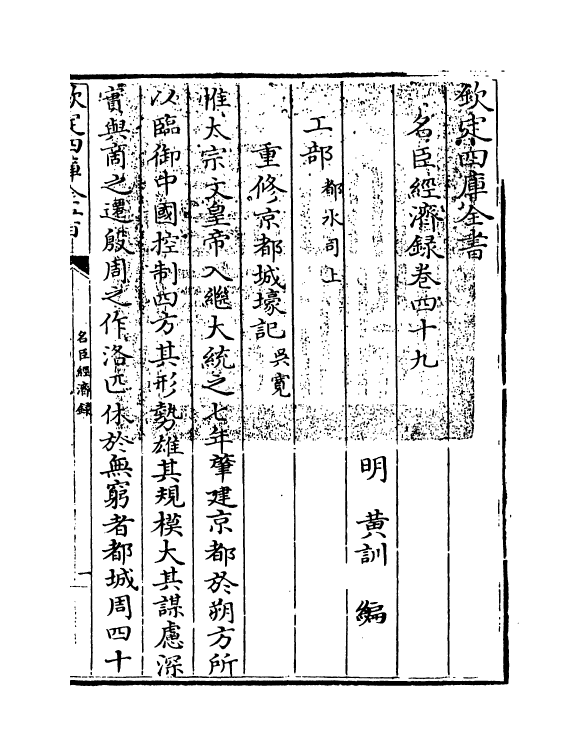 欽定四庫全書
名臣經濟録卷四十九
明　黄訓　編
工部都水司上
重修京都城壕記吳寛
惟太宗文皇帝入繼大統之七年肇建京都於朔方所
以臨御中國控制四方其形勢雄其規模大其謀慮深
實與商之遷殷周之作洛匹休於無窮者都城周四十
欽定四庫全書
名臣經濟録
一